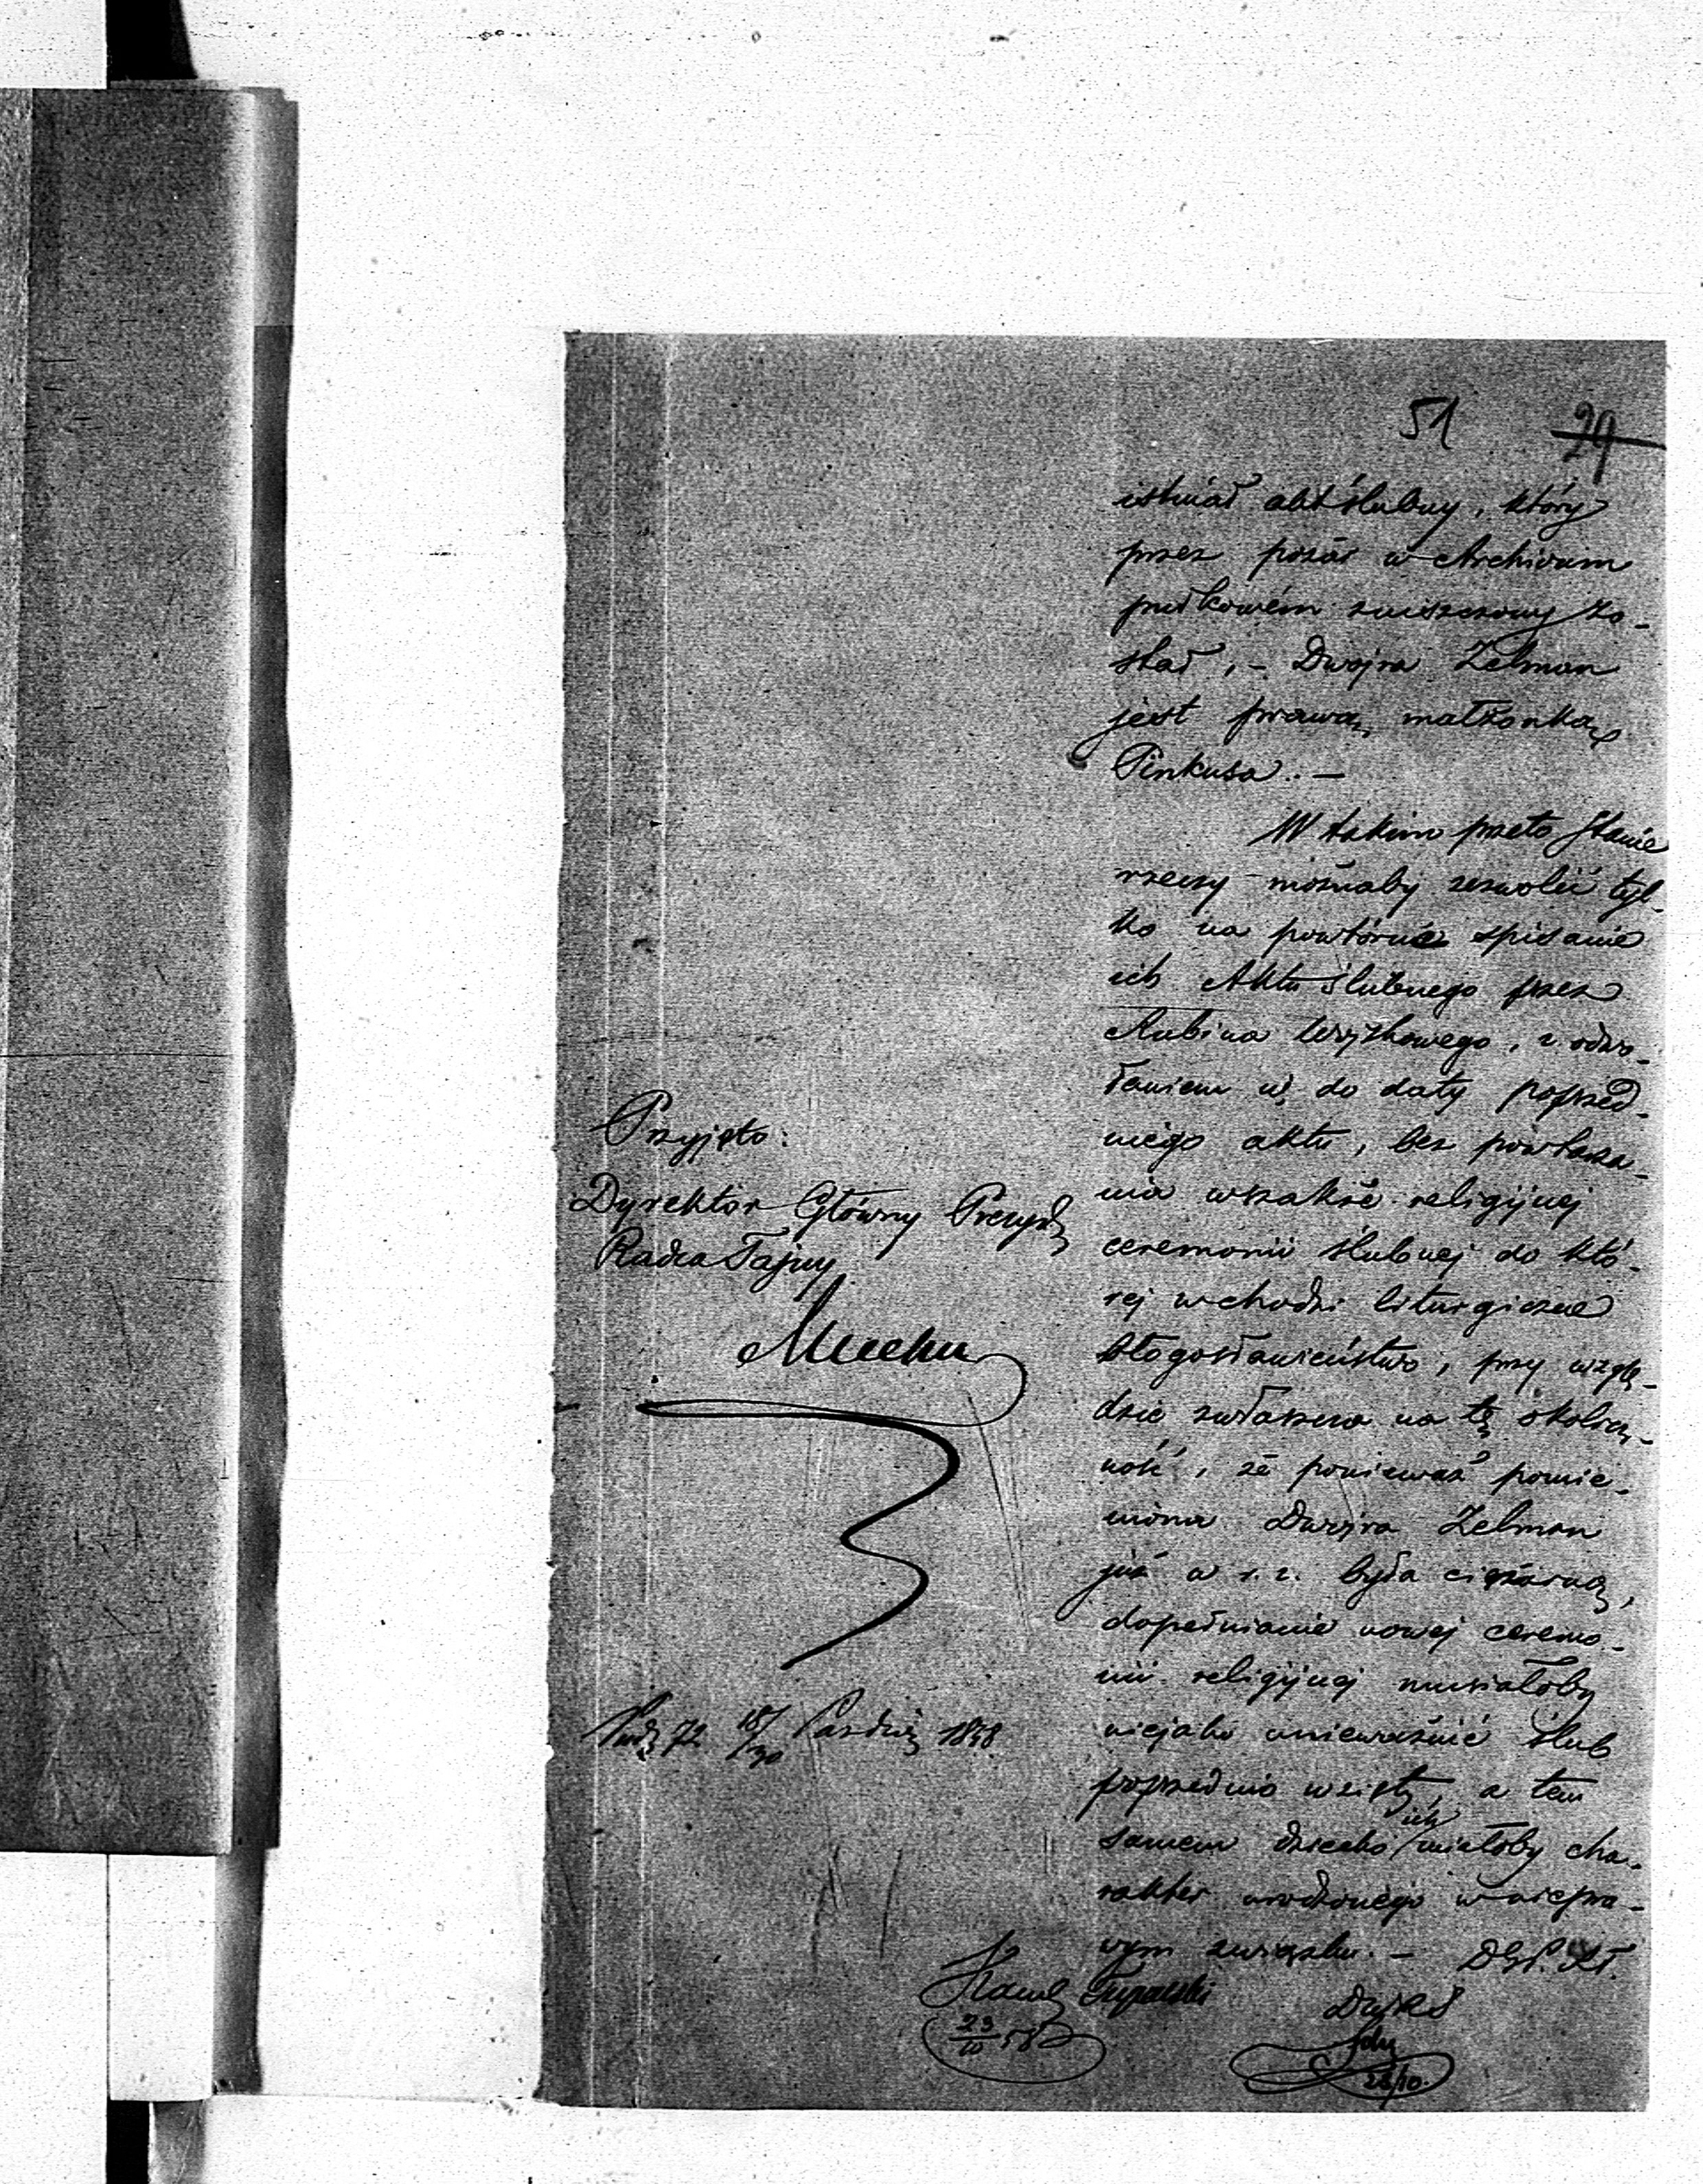 51 29
istniał akt ślubny, który
przez pożar w Archivum
pułkowém zniszczony zo-
stał, – Dwojra Zelman
jest prawą małżonką
Pinkusa. –
W takim przeto stanie
rzeczy możnaby zezwolić tyl-
ko na powtórne spisanie
ich Aktu ślubnego przez
Rabina Wojskowego, z odwo-
łaniem się do daty poprzed-
niego aktu, bez powtarza-
nia wszakże religijnej
ceremonii ślubnej do któ-
rej wchodzi liturgiczne
błogosławieństwo, przy wzglę-
dzie zwłaszcza na tę okolicz-
ność, że ponieważ pomie-
niona Dwojra Zelman
już w r. z. była ciężarną,
dopełnianie nowej ceremo-
nii religijnej musiałoby
niejako unieważnić ślub
poprzednio wzięty, a tem
samem dziecko ich miałoby cha-
rakter urodzonego w niepra-
wym związku. –
Przyjęto:
Dyrektor Główny Prezyd
Radca Tajny
Muchu
72 18/30 Paździe 1858
Tupalski
23/10 58
28/10